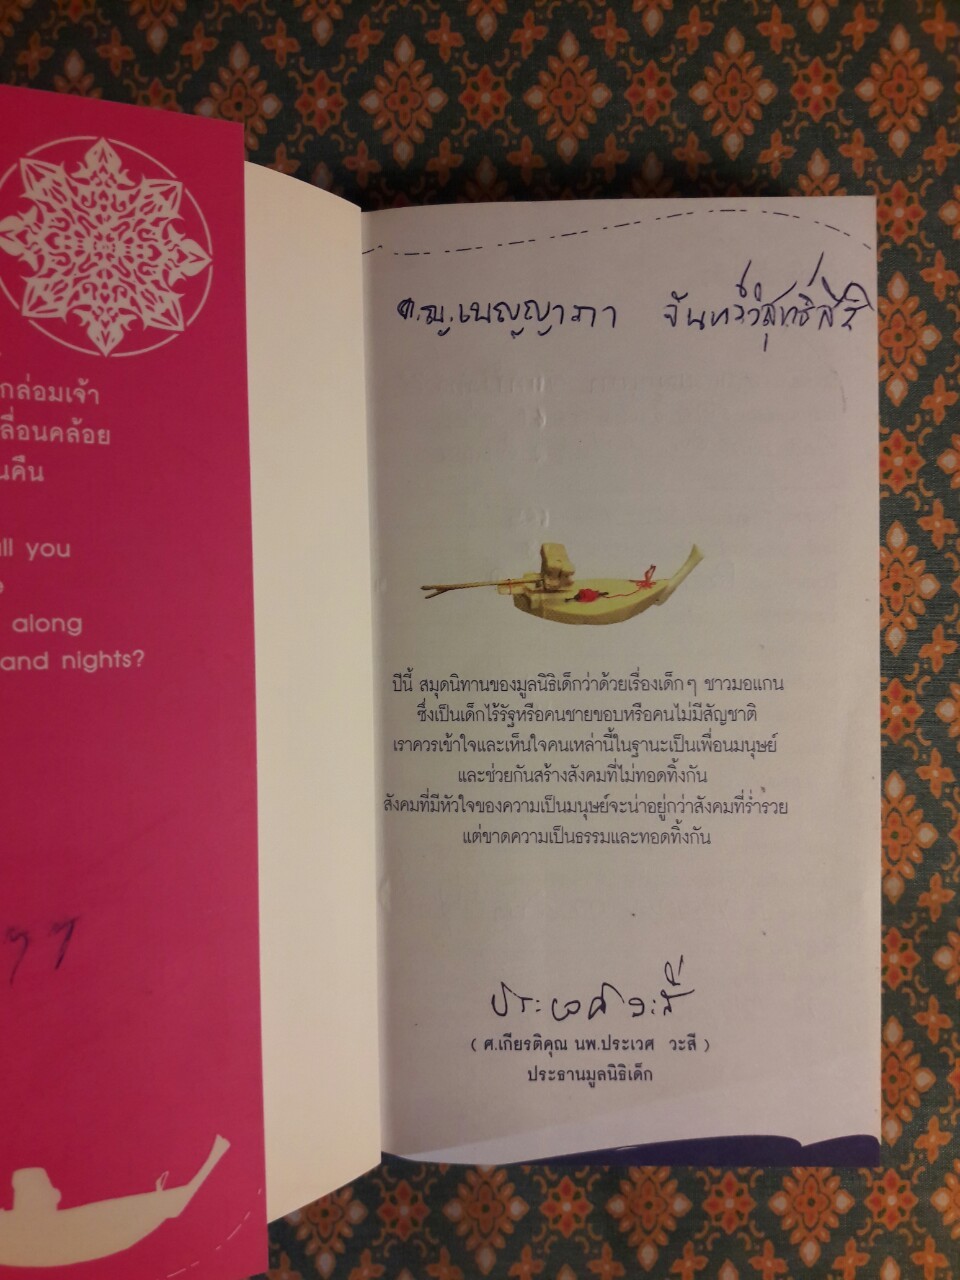 กล่อมเจ้า
ลื่อนคล้อย
นคืน
ll you
e
along
and nights?
ด.ญ.เบญญาภา จันทร์วิสุทธิ์สิริ
ปีนี้ สมุดนิทานของมูลนิธิเด็กว่าด้วยเรื่องเด็กๆ ชาวมอแกน
ซึ่งเป็นเด็กไร้รัฐหรือคนชายขอบหรือคนไม่มีสัญชาติ
เราควรเข้าใจและเห็นใจคนเหล่านี้ในฐานะเป็นเพื่อนมนุษย์
และช่วยกันสร้างสังคมที่ไม่ทอดทิ้งกัน
สังคมที่มีหัวใจของความเป็นมนุษย์จะน่าอยู่กว่าสังคมที่ร่ำรวย
แต่ขาดความเป็นธรรมและทอดทิ้งกัน
ประเวศ วะสี
( ศ.เกียรติคุณ นพ.ประเวศ วะสี )
ประธานมูลนิธิเด็ก